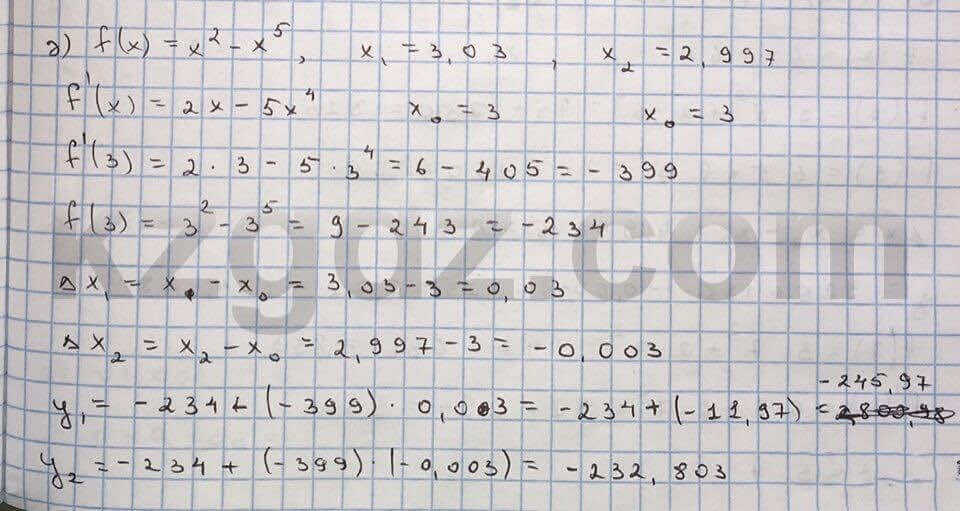 д) f(x) = x² - x⁵, x₁ = 3,03, x₂ = 2,997
f'(x) = 2x - 5x⁴ x₀ = 3 x₀ = 3
f'(3) = 2 · 3 - 5 · 3⁴ = 6 - 405 = - 399
f(3) = 3² - 3⁵ = 9 - 243 = - 234
Δx₁ = x₁ - x₀ = 3,03 - 3 = 0,03
Δx₂ = x₂ - x₀ = 2,997 - 3 = - 0,003
y₁ = - 234 + (- 399) · 0,03 = - 234 + (- 11,97) = - 245,97
y₂ = - 234 + (- 399) · (- 0,003) = - 232,803